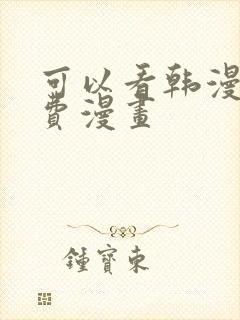 可以看韩漫
费漫畫
鍾寶東